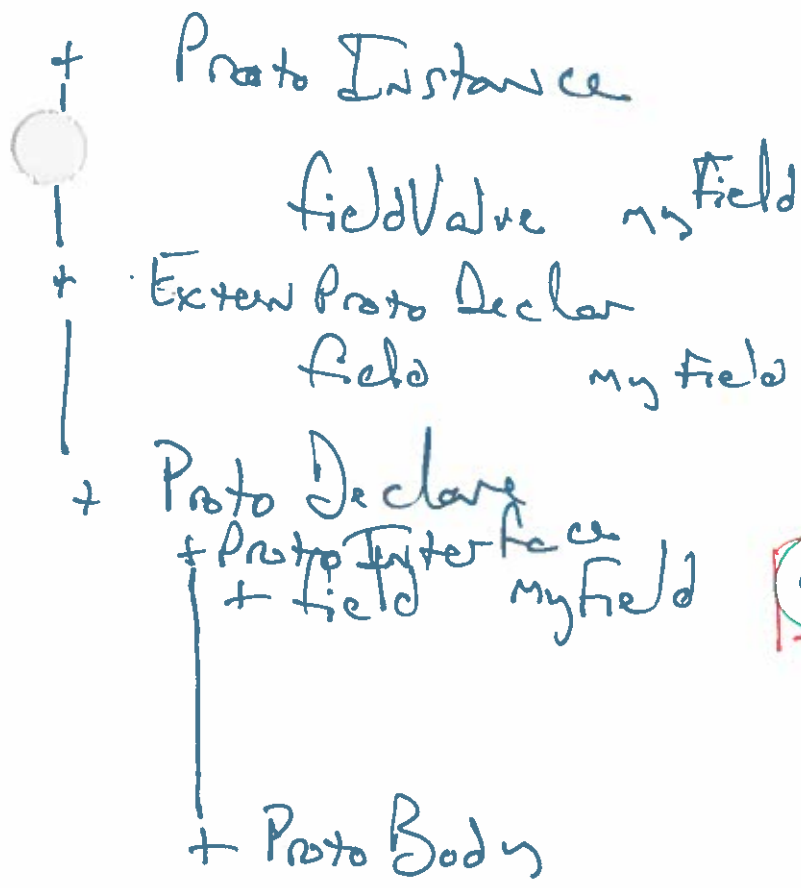 + Proto Instance
fieldValue myField
+ Extern Proto Declar
field myField
+ Proto Declare
+ Proto Interface
+ field myField
+ Proto Body